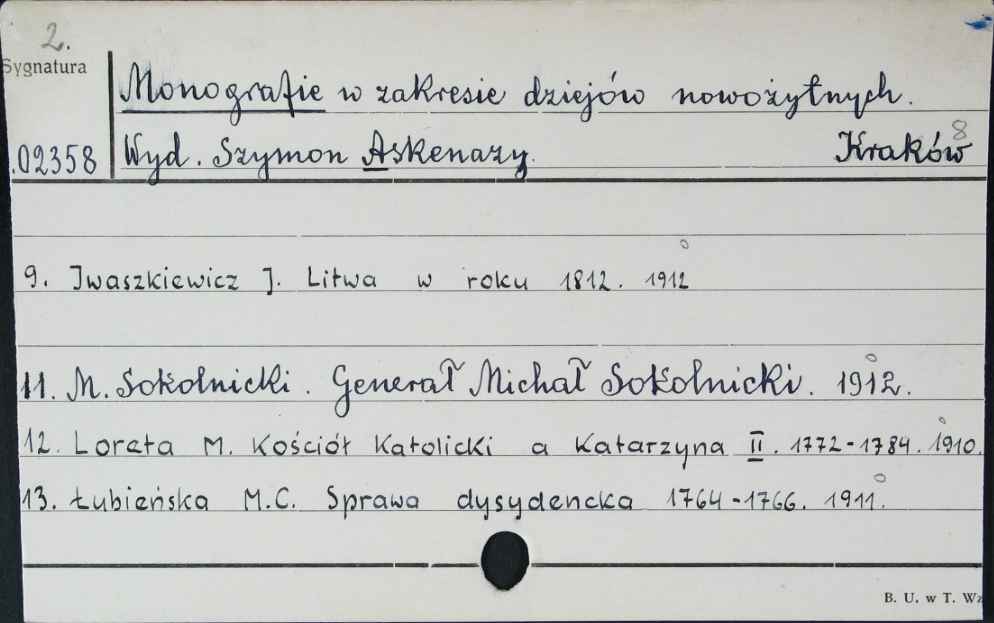 2.
Sygnatura
Monografie w zakresie dziejów nowożytnych.
.02358 Wyd. Szymon Askenazy. Kraków 8
9. Iwaszkiewicz J. Litwa w roku 1812. 1912
11. M. Sokolnicki. Generał Michał Sokolnicki. 1912.
12. Loreta M. Kościół Katolicki a Katarzyna II. 1772-1784. 1910.
13. Łubieńska M.C. Sprawa dysydencka 1764-1766. 1911.
B. U. w T. Wz